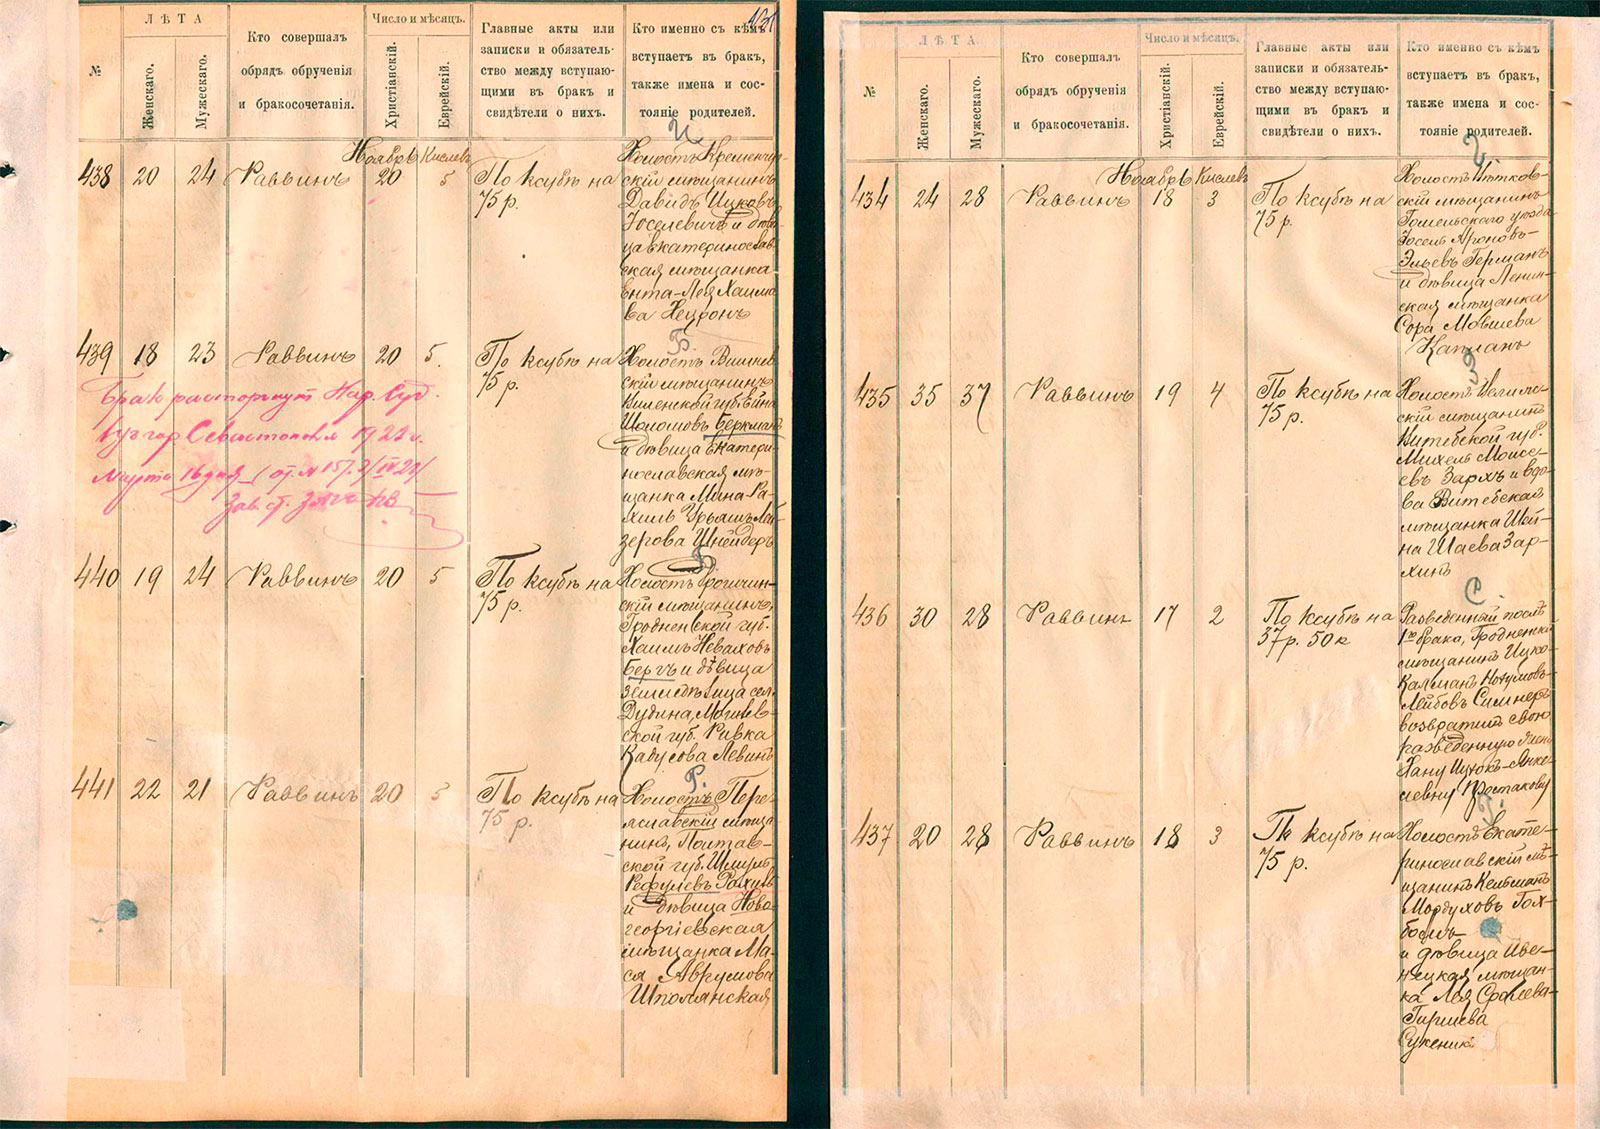 №
ЛѢТА
Женскаго.
Мужескаго.
Кто совершалъ
обрядъ обрученія
и бракосочетанія.
Число и мѣсяцъ.
Христіанскій.
Еврейскій.
Главные акты или
записки и обязатель-
ство между вступаю-
щими въ бракъ и
свидѣтели о нихъ.
Кто именно съ кѣмъ
вступаетъ въ бракъ,
также имена и сос-
тояніе родителей.
Ноябрь Кислевъ
438 20 24 Раввинъ 20 5
По ксубѣ на
75 р.
Холостъ Кременчуг-
скій мѣщанинъ
Давидъ Ицковъ
Іоселевичъ и дѣви-
ца Екатеринослав-
ская мѣщанка
Ента-Лея Хаимо-
ва Нецронъ
439 18 23 Раввинъ 20 5.
По ксубѣ на
75 р.
Б.
Холостъ Вишнев-
скій мѣщанинъ
Виленской губ.
Шоломовъ Беркманъ
и дѣвица Екатери-
нославская мѣ-
щанка Мина-Ра-
хиль
зерова Шнейдеръ
Брак расторгнут Нар. Суд.
гор Севастополя 1922 г.
марта 16 дня
440 19 24 Раввинъ 20 5
По ксубѣ на
75 р.
Б
Холостъ
скій мѣщанинъ,
Гродненской губ.
Хаимъ Неваховъ
Бергъ и дѣвица
сел.
Дудина, Могилев-
ской губ. Ривка
Кадусова Левинъ
441 22 21 Раввинъ 20 5
По ксубѣ на
75 р.
Р.
Холостъ Пере-
яславскій мѣща-
нинъ, Полтав-
ской губ. Шмуль
Рефулевъ
и дѣвица Ново-
георгіевская
мѣщанка Ма-
ся Аврумова
Шполянская
№
ЛѢТА
Женскаго.
Мужескаго.
Кто совершалъ
обрядъ обрученія
и бракосочетанія.
Число и мѣсяцъ.
Христіанскій.
Еврейскій.
Главные акты или
записки и обязатель-
ство между вступаю-
щими въ бракъ и
свидѣтели о нихъ.
Кто именно съ кѣмъ
вступаетъ въ бракъ,
также имена и сос-
тояніе родителей.
Ноябрь Кислевъ
434 24 28 Раввинъ 18 3
По ксубѣ на
75 р.
Холостъ
скій мѣщанинъ
Гомельскаго уѣзда
Іосель Ароновъ-
Эльевъ Германъ
и дѣвица Ленин-
ская мѣщанка
Сора Мовшева
Капланъ
435 35 37 Раввинъ 19 4
По ксубѣ на
75 р.
З
Холостъ Велижс-
скій мѣщанинъ
Витебской губ.
Михель Моисе-
евъ Зархъ и вдо-
ва Витебская
мѣщанка Шей-
на Шаева Зар-
хинъ
436 30 28 Раввинъ 17 2
По ксубѣ на
37 р. 50 к
С
Разведенный послѣ
1го брака, Гродненскій
мѣщанинъ Ицко-
Калманъ Нотумовъ-
Лейбовъ
возвратилъ свою
разведенную жену
Хану Янке-
левну Ростакову
437 20 28 Раввинъ 18 3
По ксубѣ на
75 р.
Холостъ Екате-
ринославскій мѣ-
щанинъ Кельманъ
Мордуховъ Гох-
боймъ
и дѣвица Иве-
нецкая мѣщан-
ка Лея Сролева-
Гиршева
Сукеник